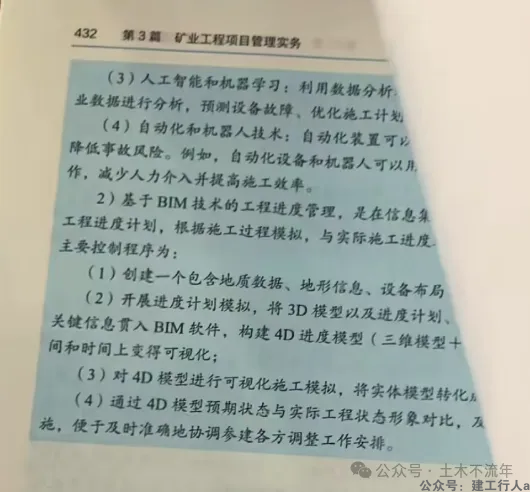 432 第3篇 矿业工程项目管理实务
(3)人工智能和机器学习:利用数据分析
业数据进行分析,预测设备故障、优化施工计划
(4)自动化和机器人技术:自动化装置可以
降低事故风险。例如,自动化设备和机器人可以用
作,减少人力介入并提高施工效率。
2)基于BIM技术的工程进度管理,是在信息集
工程进度计划,根据施工过程模拟,与实际施工进度
主要控制程序为:
(1)创建一个包含地质数据、地形信息、设备布局
(2)开展进度计划模拟,将3D模型以及进度计划、
关键信息贯入BIM软件,构建4D进度模型(三维模型+
间和时间上变得可视化;
(3)对4D模型进行可视化施工模拟,将实体模型转化
(4)通过4D模型预期状态与实际工程状态形象对比,及
施,便于及时准确地协调参建各方调整工作安排。
公众号·土木不流年
公众号:建工行人a